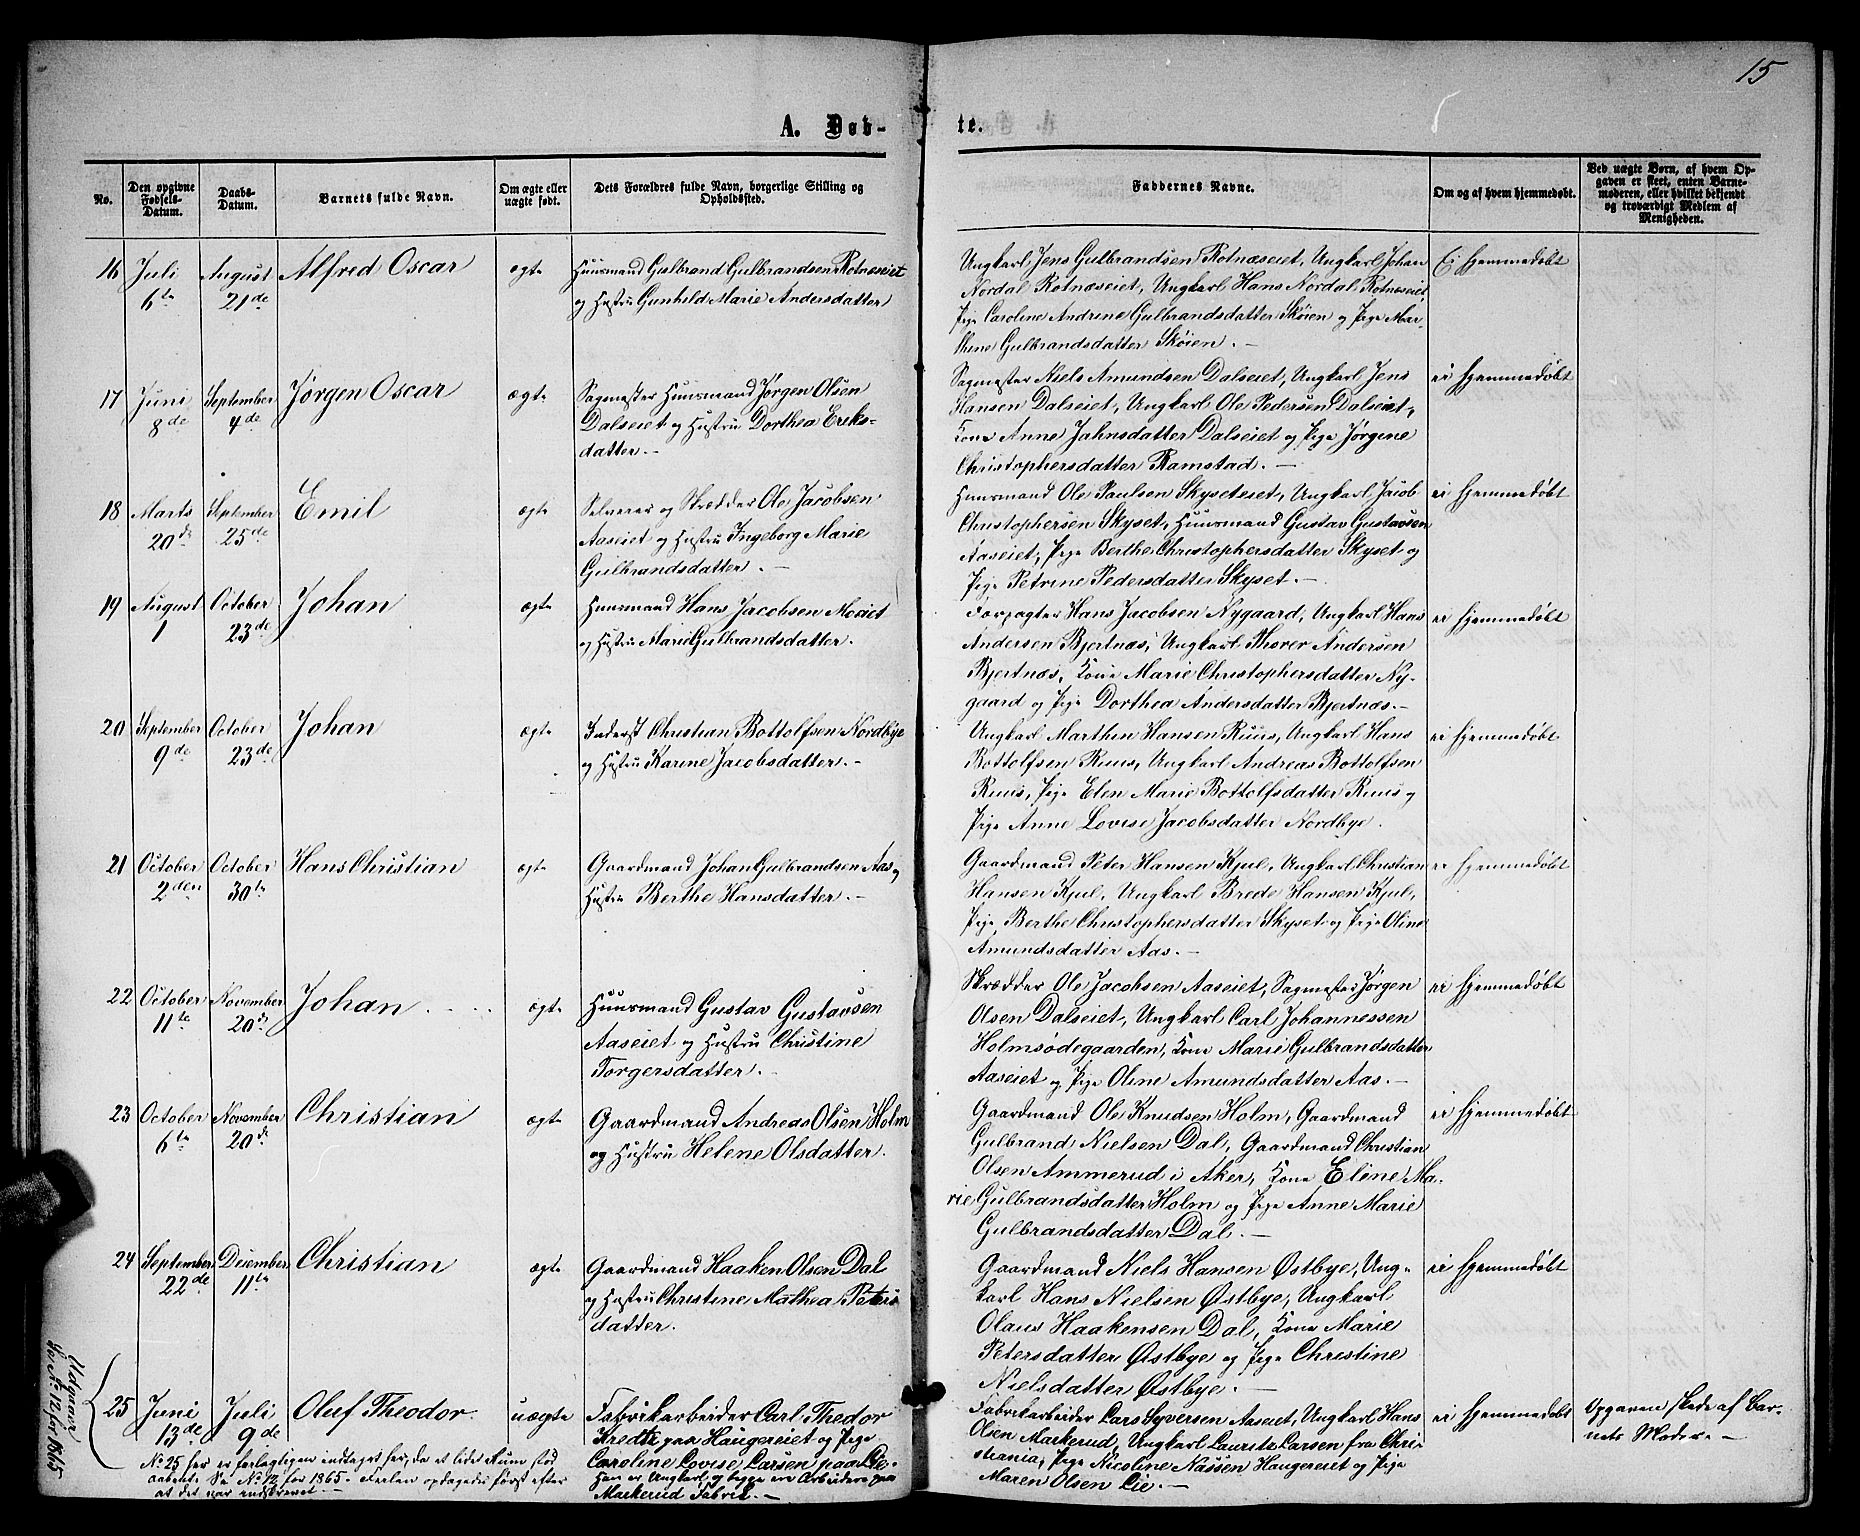 15
A. Døb-
te.
No.
Den opgivne Fødsels-Datum.
Daabs-Datum.
Barnets fulde Navn.
Om ægte eller uægte født.
Dets Forældres fulde Navn, borgerlige Stilling og Opholdssted.
Faddernes Navne.
Om og af hvem hjemmedøbt.
Ved uægte Børn, af hvem Opgaven er skeet, enten Barnemoderen, eller hvilket bekjendt og troværdigt Medlem af Menigheden.
16 Juli 6te August 21de Alfred Oscar ægte
Huusmand Gulbrand Gulbrandsen Rotneseiet
og Hustru Gunhild Marie Andersdatter
Ungkarl Jens Gulbrandsen Rotnæseiet, Ungkarl Johan
Nordal Rotnæseiet, Ungkarl Hans Nordal Rotnæseiet,
Pige Caroline Andrine Gulbrandsdatter Skøien og Pige Mar-
thine Gulbrandsdatter Skøien. -
Ei hjemmedøbt
17 Juni 8de September 4de Jørgen Oscar ægte
Sagmester Huusmand Jørgen Olsen
Dalseiet og Hustru Dorthea Ereks-
datter. -
Sagmester Niels Amundsen Dalseiet, Ungkarl Jens
Hansen Dalseiet, Ungkarl Ole Pedersen Dalseiet,
Kone Anne Jahnsdatter Dalseiet og Pige Jørgine
Christophersdatter Ramstad. -
ei hjemmedøbt
18 Marts 20de September 25de Emil ægte
Selveier og Skrædder Ole Jacobsen
Aaseiet og Hustru Ingeborg Marie
Gulbrandsdatter. -
Huusmand Ole Paulsen Skyseteiet, Ungkarl Jacob
Christophersen Skyset, Huusmand Gustav Gustavsen
Aaseiet, Pige Berthe Christophersdatter Skyset og
Pige Petrine Pedersdatter Skyset. -
ei hjemmedøbt
19 August 1 October 23de Johan ægte
Huusmand Hans Jacobsen Moeiet
og Hustru Marie Gulbrandsdatter.
Forpagter Hans Jacobsen Nygaard, Ungkarl Hans
Andersen Bjertnæs, Ungkarl Thorer Andersen
Bjertnæs, Kone Marie Christophersdatter Ny-
gaard og Pige Dorthea Andersdatter Bjertnæs. -
ei hjemmedøbt
20 September 9de October 23de Johan ægte
Inderst Christian Bottolfsen Nordbye
og Hustru Karine Jacobsdatter. -
Ungkarl Marthin Hansen Ruus, Ungkarl Hans
Bottolfsen Ruus, Ungkarl Andreas Bottolfsen
Ruus, Pige Elen Marie Bottolfsdatter Ruus og
Pige Anne Lovise Jacobsdatter Nordbye.
ei hjemmedøbt
21 October 2den October 30te Hans Christian ægte
Gaardmand Johan Gulbrandsen Aas og
Hustru Berthe Hansdatter. -
Gaardmand Peter Hansen Kjul, Ungkarl Christian
Hansen Kjul, Ungkarl Brede Hansen Kjul,
Pige Berthe Christophersdatter Skyset og Pige Oline
Amundsdatter Aas. -
ei hjemmedøbt
22 October 11te November 20de Johan ægte
Huusmand Gustav Gustavsen
Aaseiet og Hustru Christine
Torgersdatter. -
Skrædder Ole Jacobsen Aaseiet, Sagmester Jørgen
Olsen Dalseiet, Ungkarl Carl Johannessen
Holmsødegaarden, Kone Marie Gulbrandsdatter
Aaseiet og Pige Oline Amundsdatter Aas. -
ei hjemmedøbt
23 October 6te November 20de Christian ægte
Gaardmand Andreas Olsen Holm
og Hustru Helene Olsdatter.
Gaardmand Ole Knudsen Holm, Gaardmand
Gulbrand Nielsen Dal, Gaardmand Christian
Olsen Ammerud i Aker, Kone Eline Ma-
rie Gulbrandsdatter Holm og Pige Anne Marie
Gulbrandsdatter Dal. -
ei hjemmedøbt
24 September 22de December 11te Christian ægte
Gaardmand Haaken Olsen Dal
og Hustru Christine Mathea Peters
datter.
Gaardmand Niels Hansen Østbye, Ung-
karl Hans Nielsen Østbye, Ungkarl
Olaus Haakensen Dal, Kone Marie
Petersdatter Østbye og Pige Christine
Nielsdatter Østbye. -
ei hjemmedøbt
Udgaaer
See No. 12 for 1865
25 Juni 13de Juli 9de Oluf Theodor. uægte
Fabrikarbeider Carl Thedor
Kreditz paa Haugereiet og Pige
Caroline Lovise Larsen paa Lie.
Han er Ungkarl, og begge ere Arbeidere paa
Markerud Fabrik. -
Fabrikarbeider Lars Syversen Aaseiet, Ungkarl Hans
Olsen Markerud, Ungkarl Lauritz Larsen, fra Chri-
stiania, Pige Nicoline Nassen Haugereiet og Pige
Maren Olsen Lie. -
ei hjemmedøbt
Opgaven skede af Bar-
nets Moder. -
No 25 her er feilagtigen indtaget her, da et lidet Rum stod
aabent. Se No 12 for 1865. - Feilen opdagedes først efter
at det var indskrevet. -